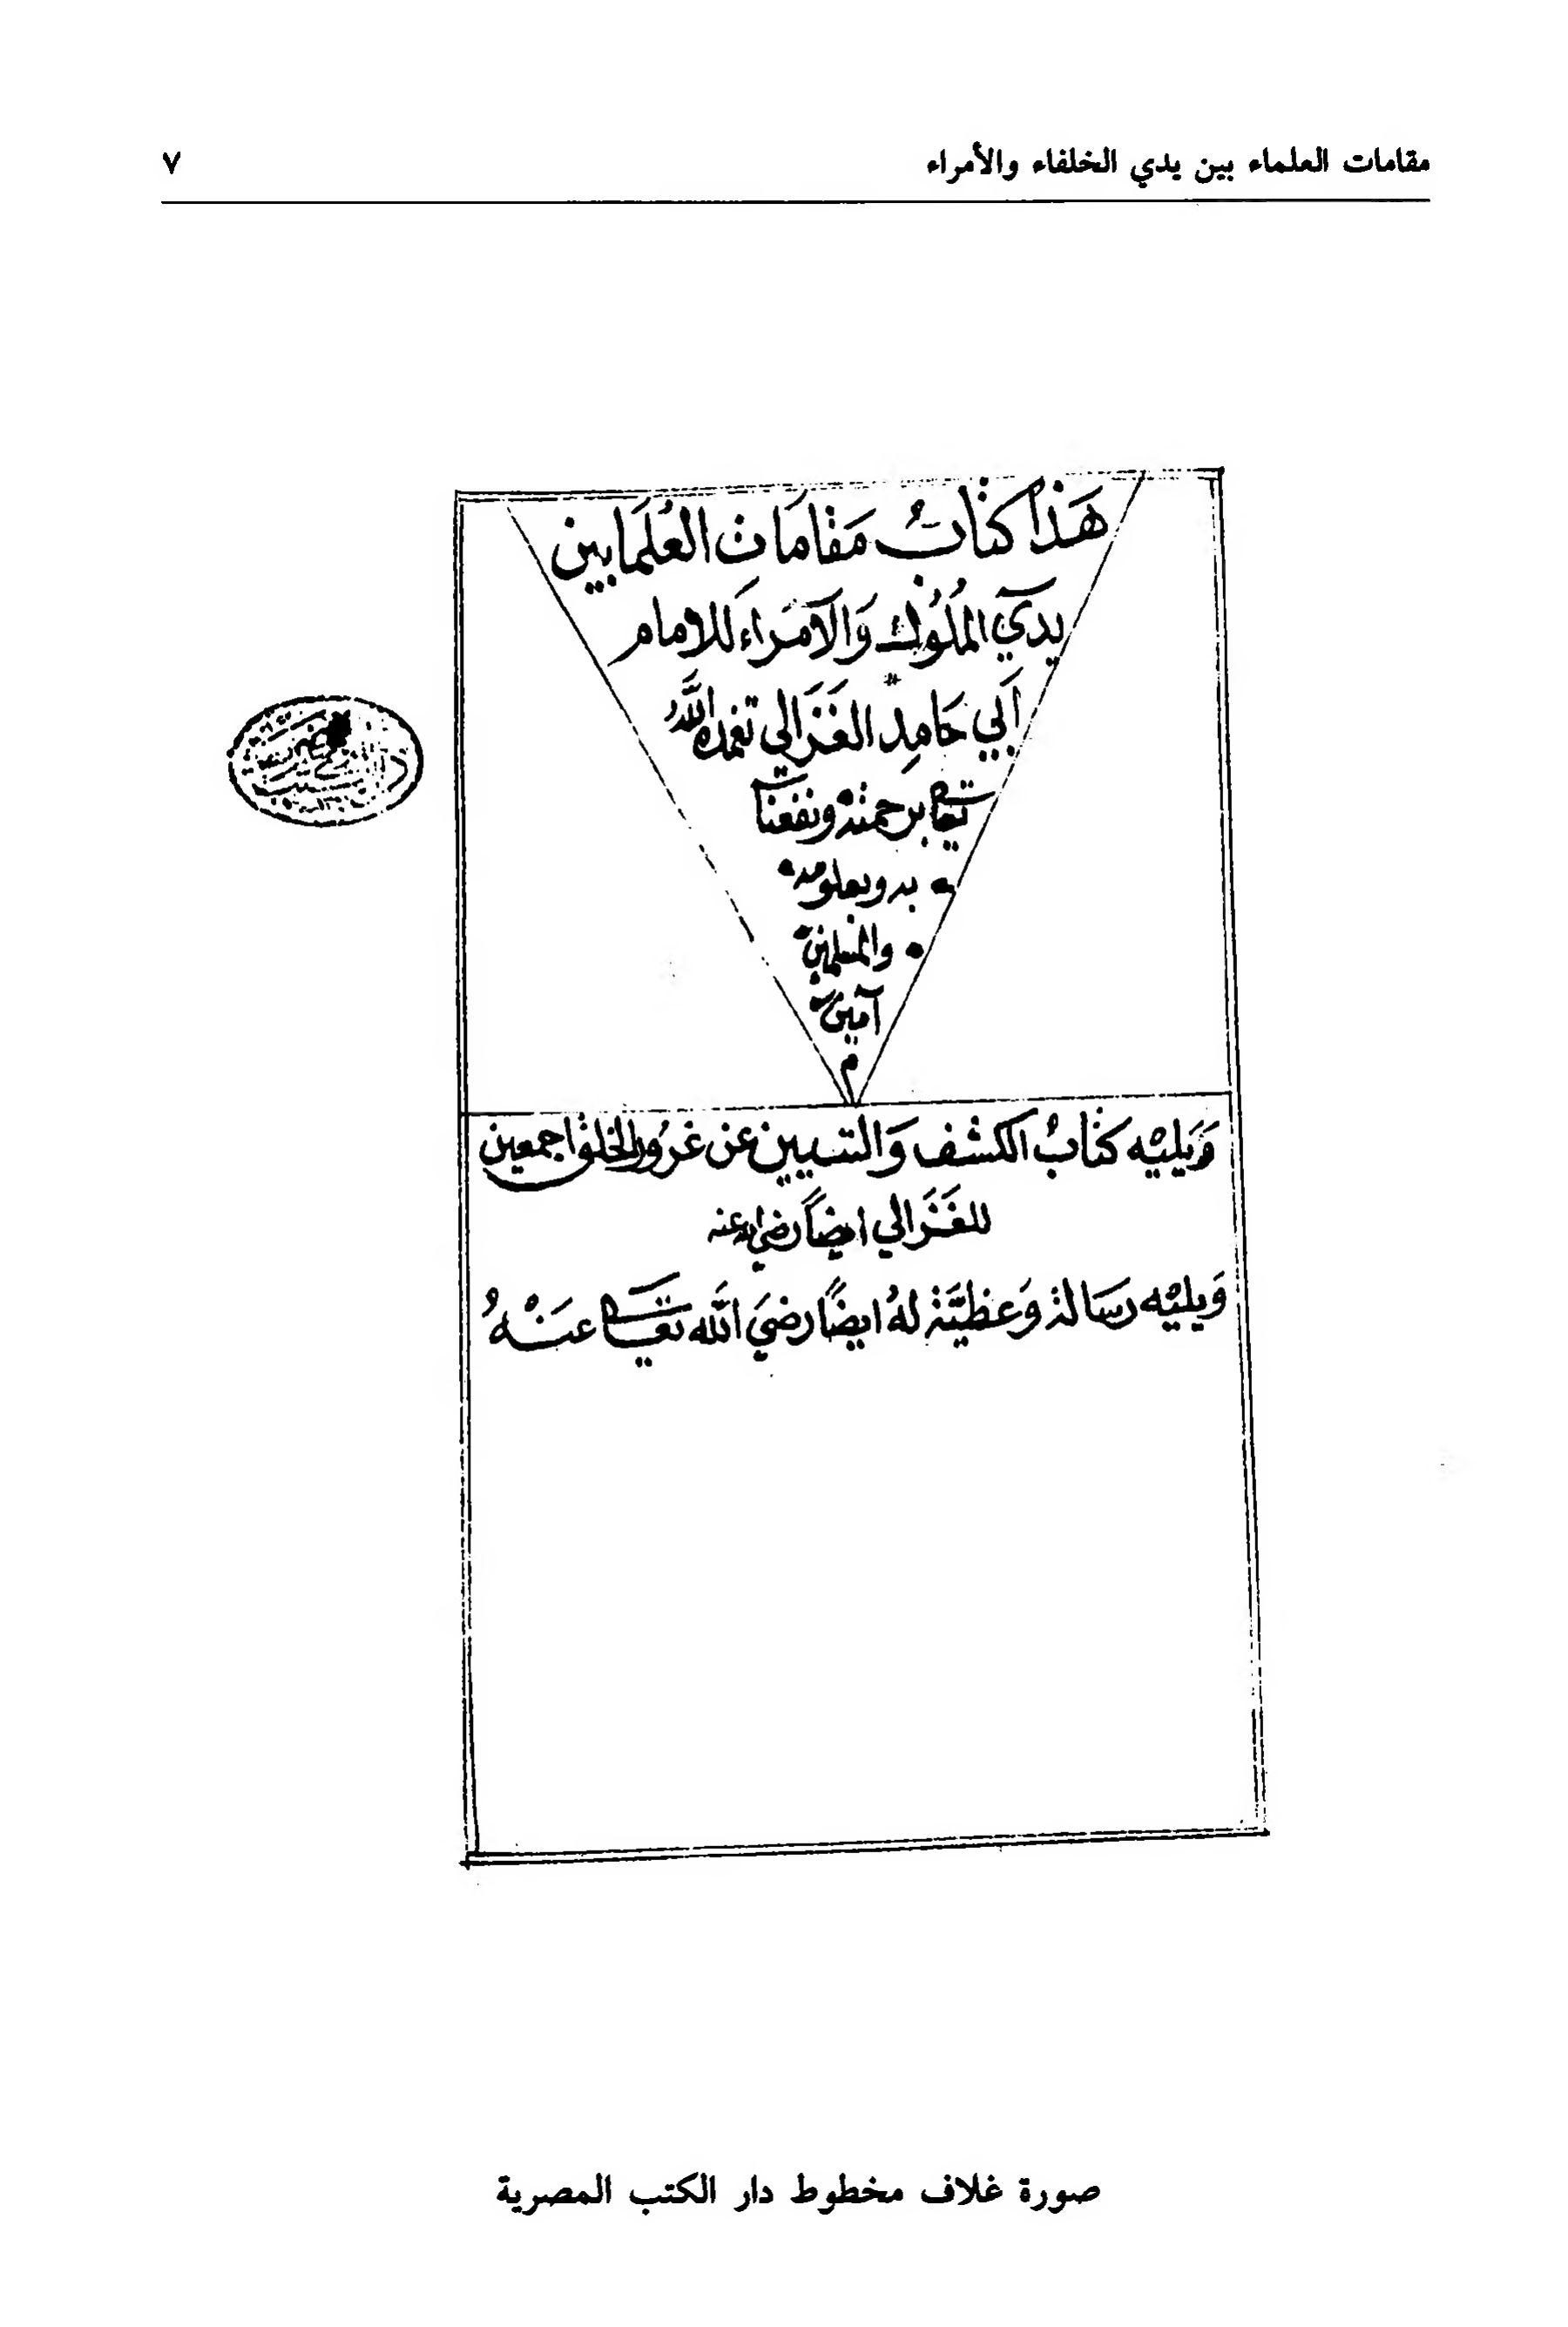 مقامات العلماء بين يدي الخلفاء والأمراء ٧
هَذا كتابُ مَقامَات العُلَمَا بين
يدَي المُلُوك وَالأمَراءِ للامام
أبي حَامِد الغَزَالي تغمده اللَّهُ
تعالى برحمته ونفعنا
به وبعلومه
والمسلمين
آمين
م
وَيَليْه كتابُ الكشف وَالتبيين عن غرُور الخلق اجمعين
للغَزَالي ايضاً رضي الله عنه
وَيليْه رسَالة وَعظيَّة لهُ ايضًا رضيَ اللَّه تعالى عنْهُ
صورة غلاف مخطوط دار الكتب المصرية